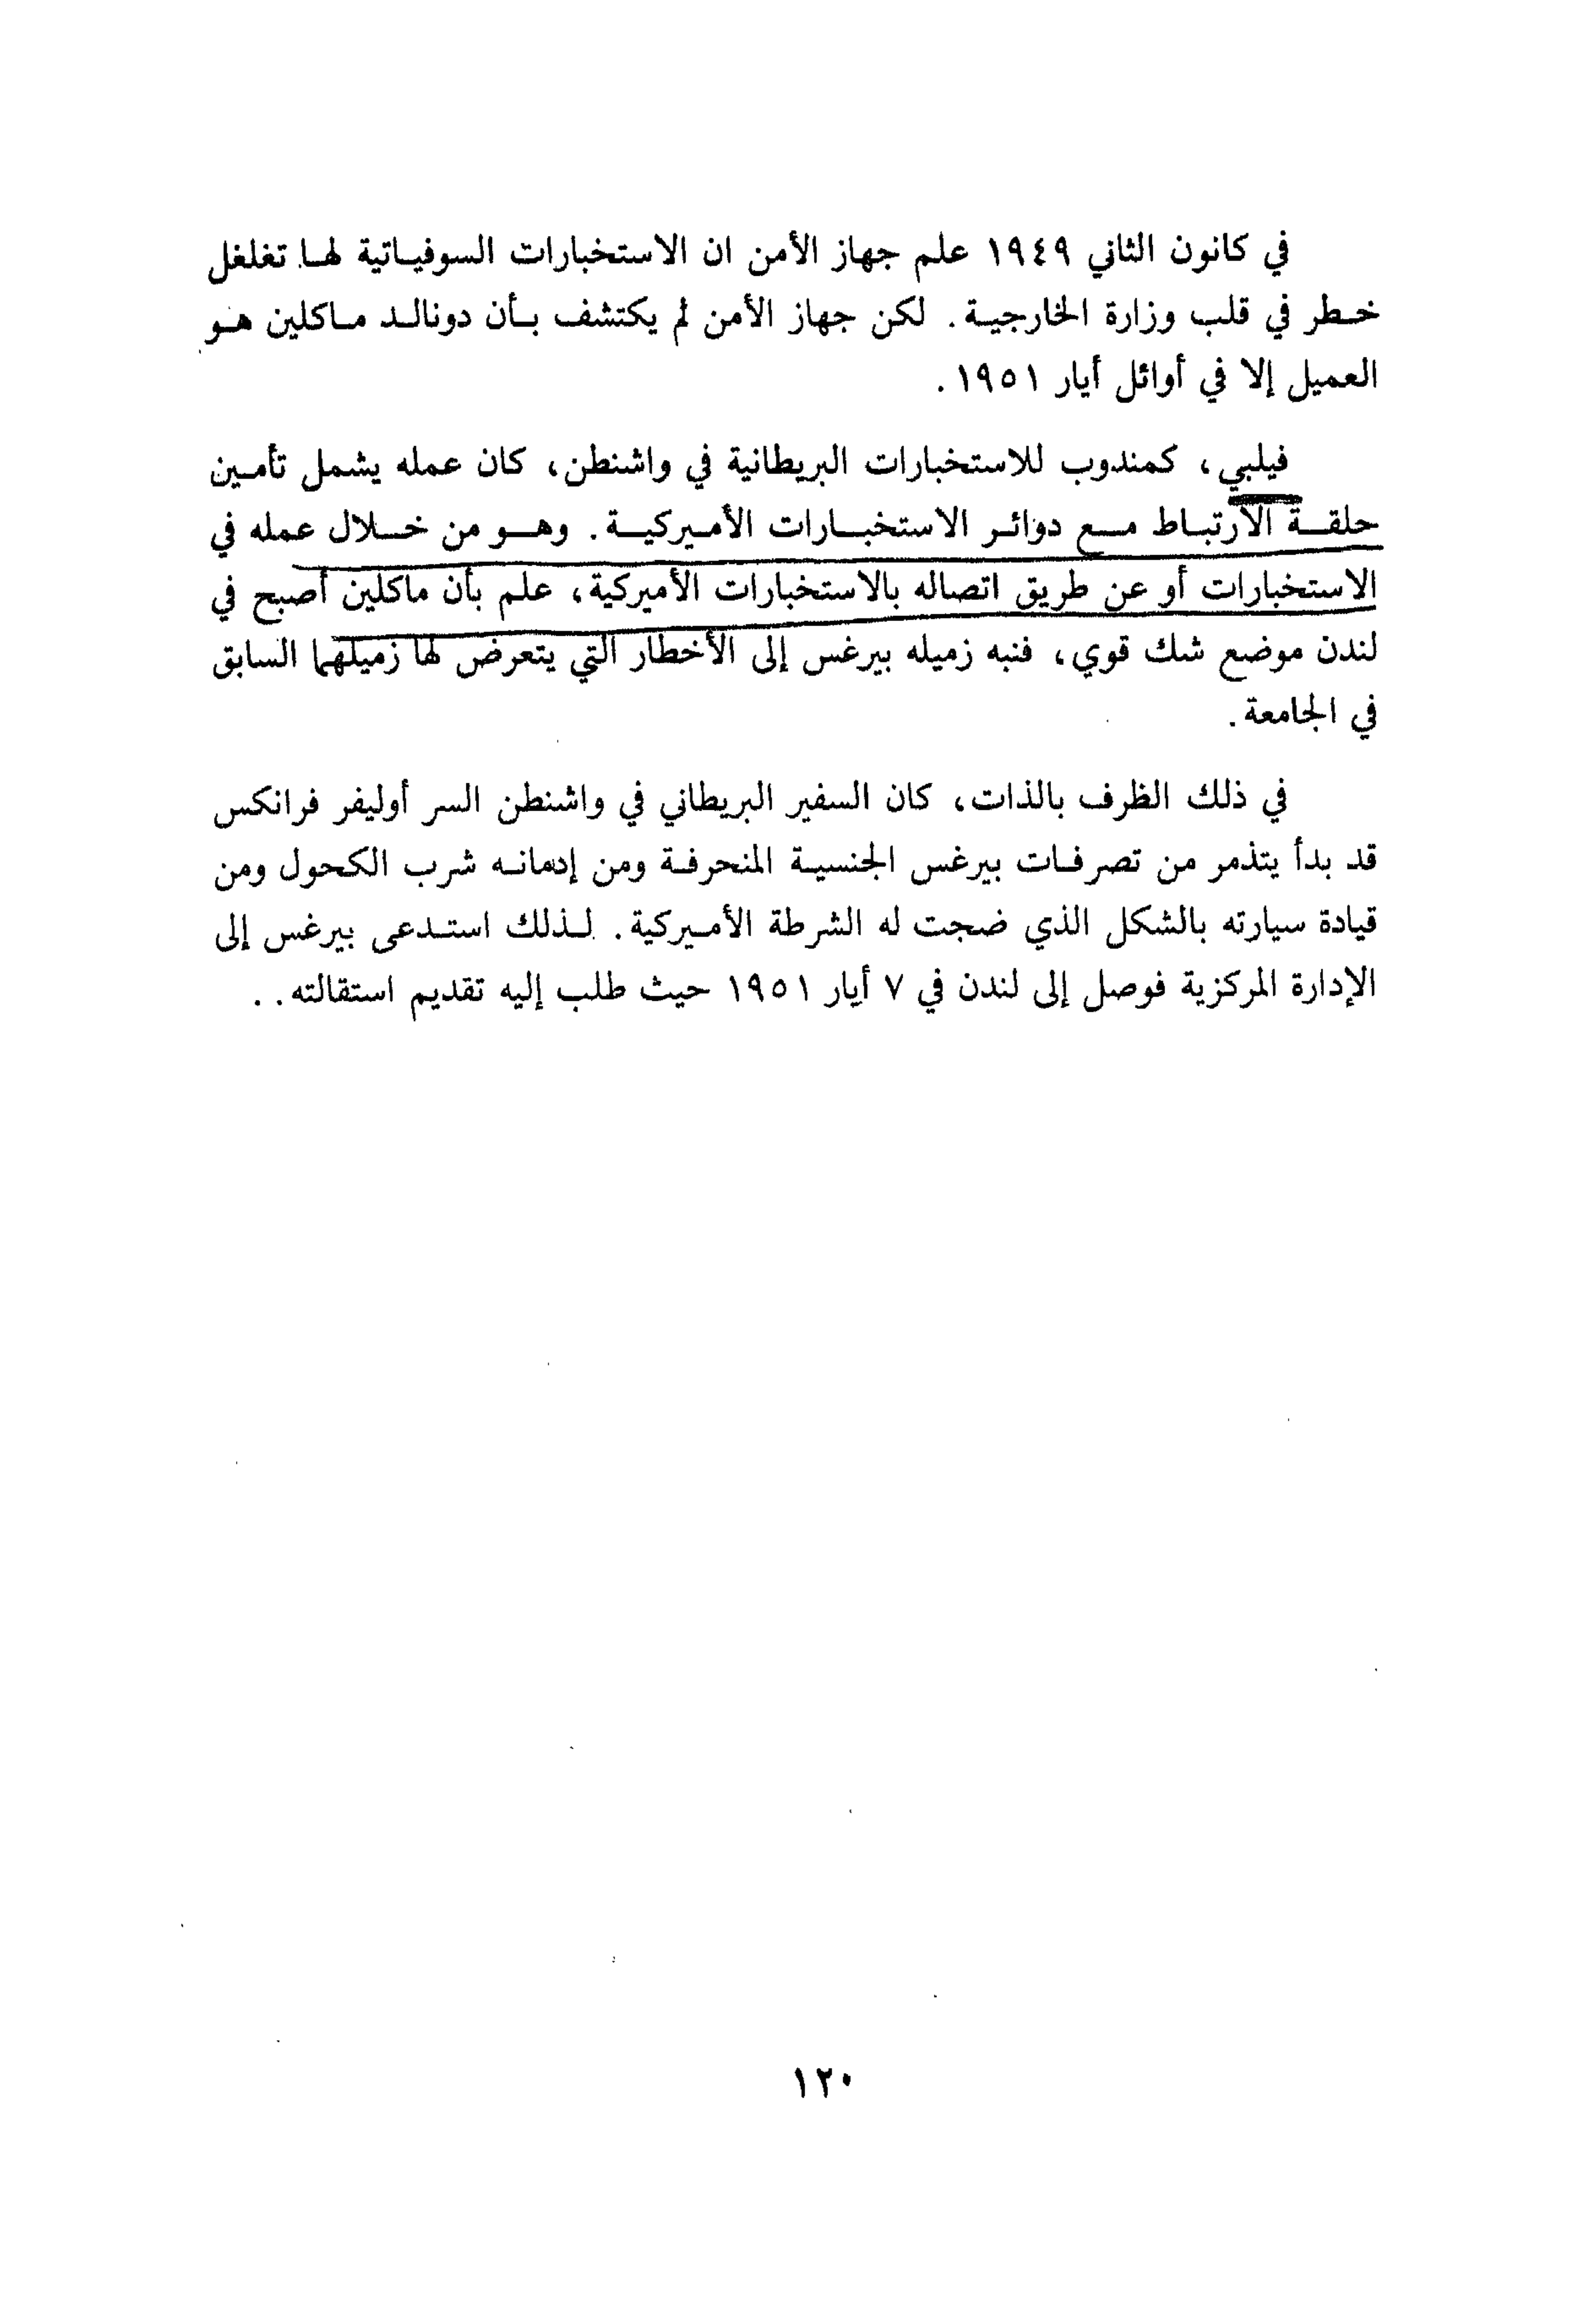 في كانون الثاني ١٩٤٩ علم جهاز الأمن ان الاستخبارات السوفياتية لها تغلغل
خطر في قلب وزارة الخارجية. لكن جهاز الأمن لم يكتشف بأن دونالد ماكلين هو
العميل إلا في أوائل أيار ١٩٥١.
فيلبي، كمندوب للاستخبارات البريطانية في واشنطن، كان عمله يشمل تأمين
حلقة الارتباط مع دوائر الاستخبارات الأميركية. وهو من خلال عمله في
الاستخبارات أو عن طريق اتصاله بالاستخبارات الأميركية، علم بأن ماكلين أصبح في
لندن موضع شك قوي، فنبه زميله بيرغس إلى الأخطار التي يتعرض لها زميلهما السابق
في الجامعة.
في ذلك الظرف بالذات، كان السفير البريطاني في واشنطن السر أوليفر فرانكس
قد بدأ يتذمر من تصرفات بيرغس الجنسية المنحرفة ومن إدمانه شرب الكحول ومن
قيادة سيارته بالشكل الذي ضجت له الشرطة الأميركية. لذلك استدعى بيرغس إلى
الإدارة المركزية فوصل إلى لندن في ٧ أيار ١٩٥١ حيث طلب إليه تقديم استقالته..
١٢٠